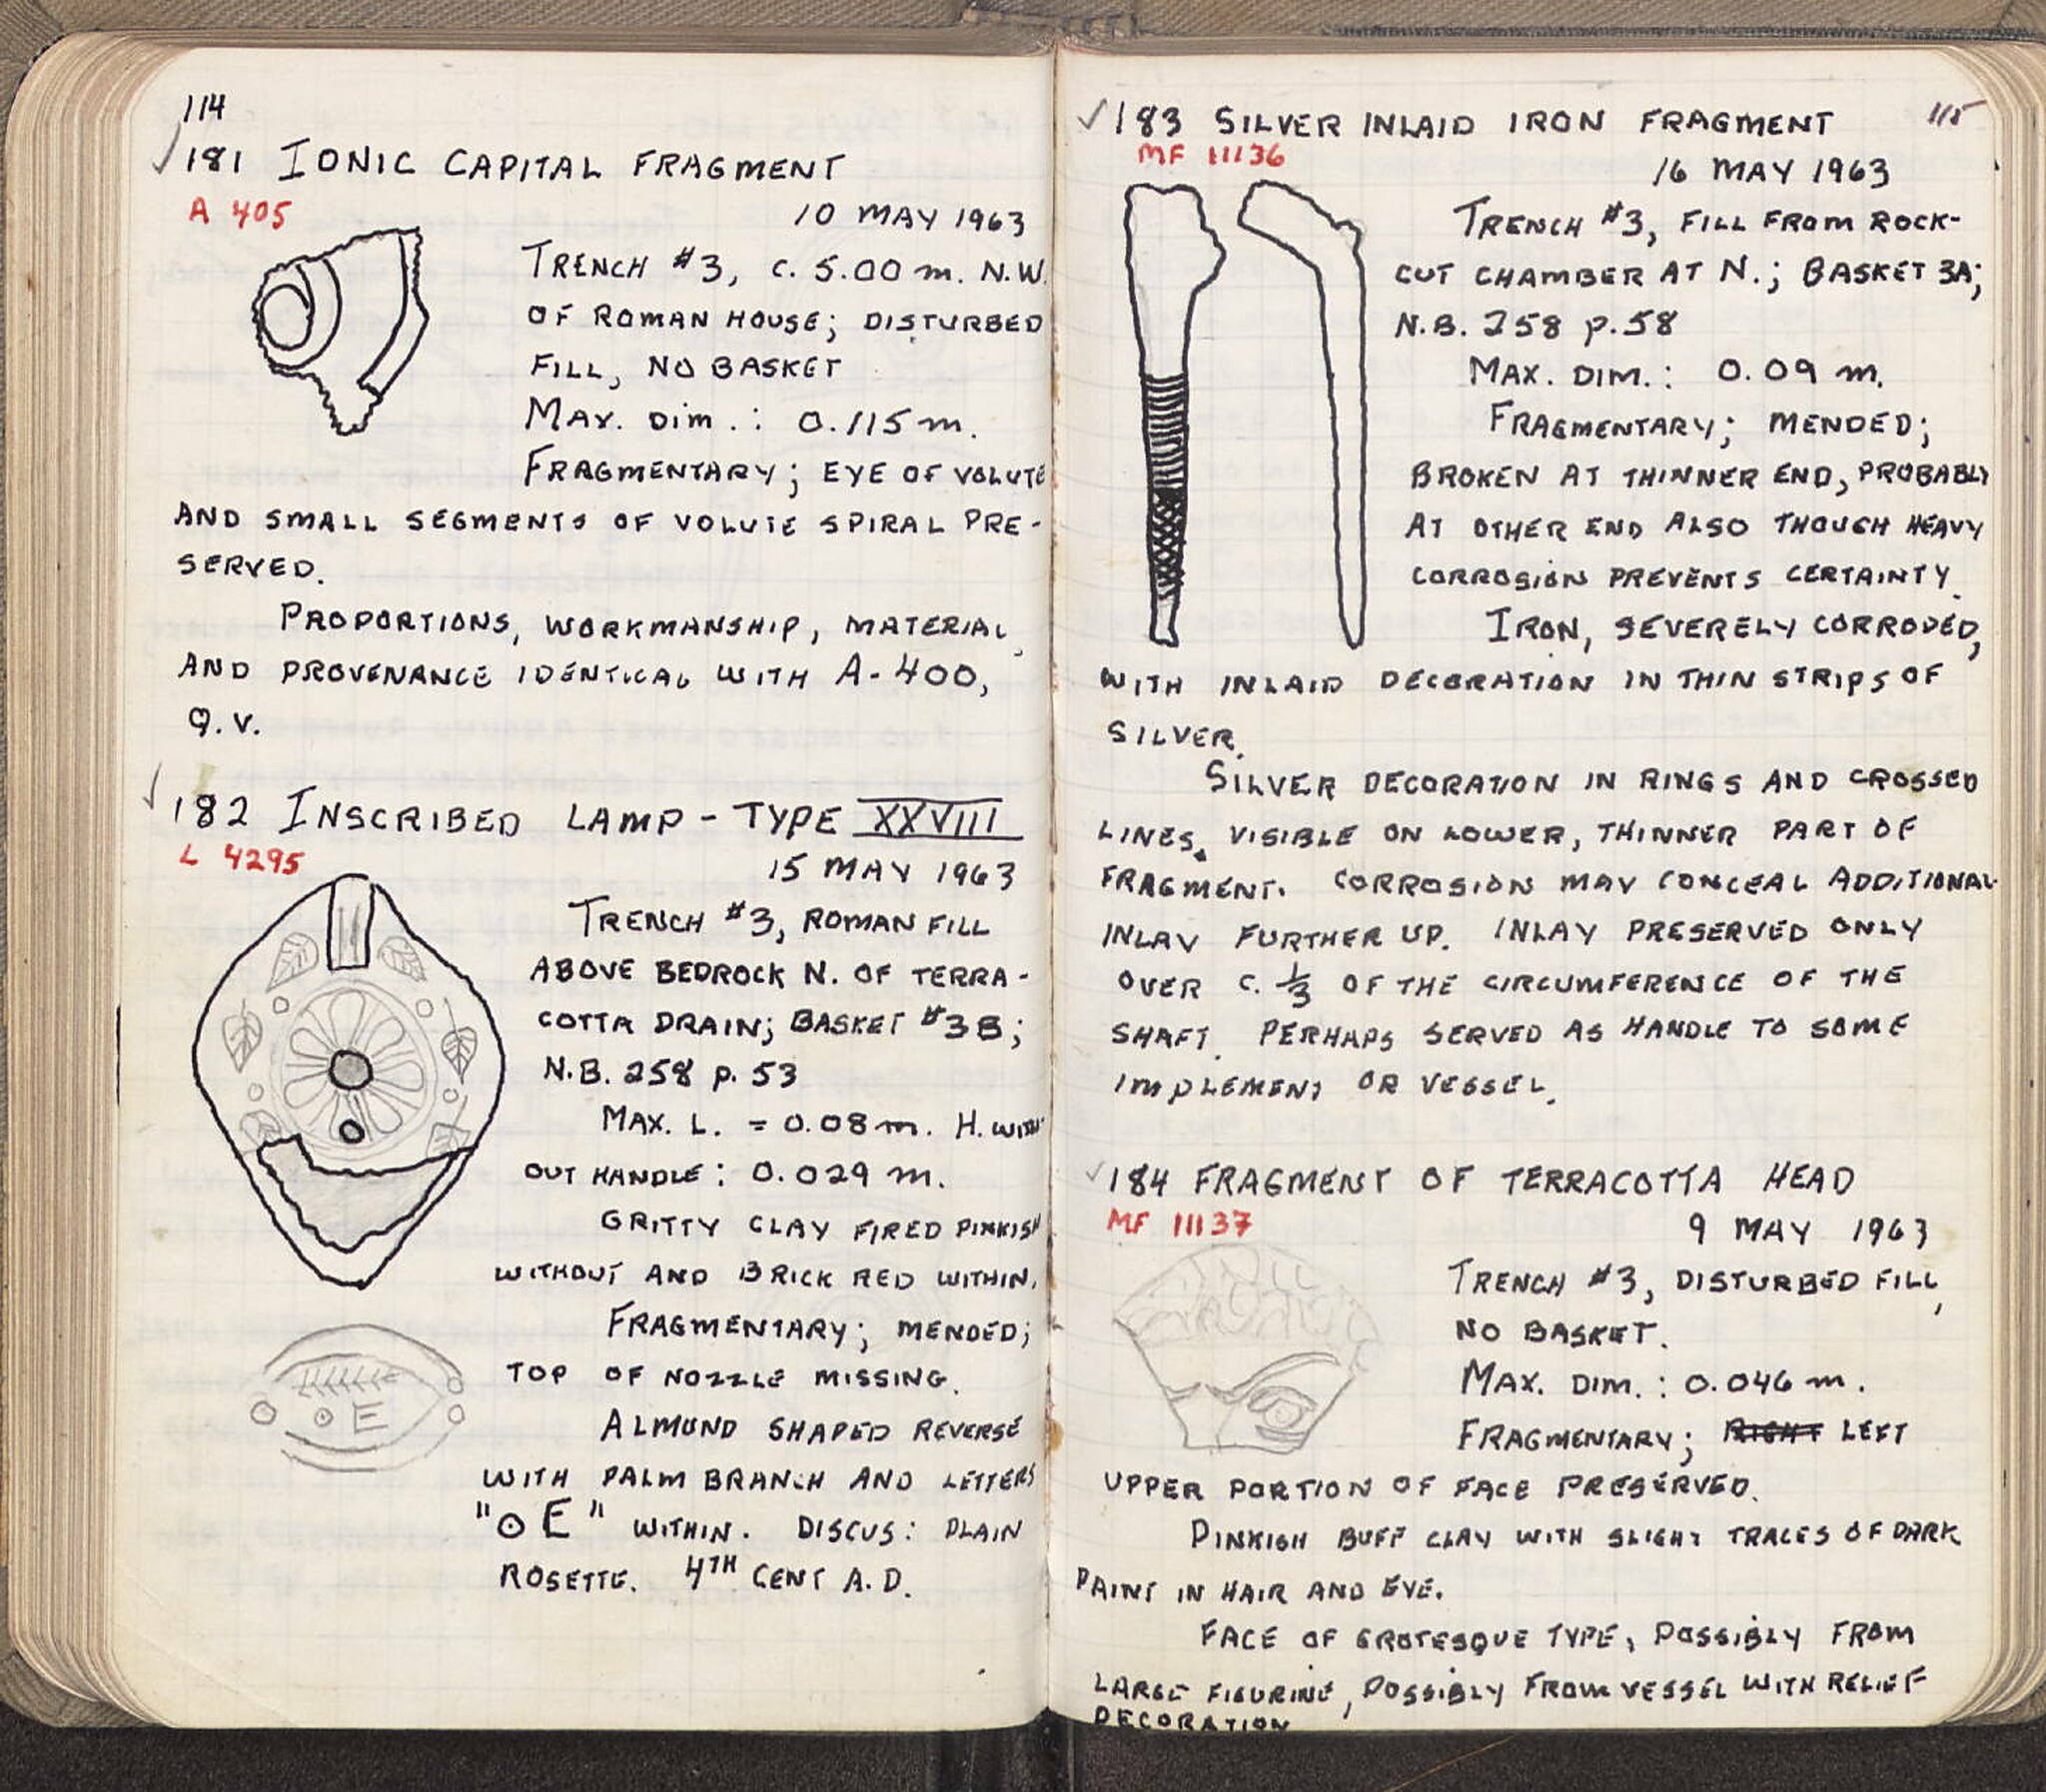 114
✓181 IONIC CAPITAL FRAGMENT
A 405
10 MAY 1963
TRENCH #3, C. 5.00 m. N.W.
OF ROMAN HOUSE; DISTURBED
FILL, NO BASKET
MAX. DIM.: 0.115 m.
FRAGMENTARY; EYE OF VOLUTE
AND SMALL SEGMENTS OF VOLUTE SPIRAL PRE-
SERVED.
PROPORTIONS, WORKMANSHIP, MATERIAL,
AND PROVENANCE IDENTICAL WITH A-400,
Q.V.
✓182 INSCRIBED LAMP - TYPE XXVIII
L 4295
15 MAY 1963
TRENCH #3, ROMAN FILL
ABOVE BEDROCK N. OF TERRA-
COTTA DRAIN; BASKET #3B;
N.B. 258 p. 53
MAX. L. = 0.08 m. H. WITH-
OUT HANDLE: 0.029 m.
GRITTY CLAY FIRED PINKISH
WITHOUT AND BRICK RED WITHIN.
FRAGMENTARY; MENDED;
TOP OF NOZZLE MISSING.
ALMOND SHAPED REVERSE
WITH PALM BRANCH AND LETTERS
"⊙ E" WITHIN. DISCUS: PLAIN
ROSETTE. 4TH CENT A.D.
⊙ E
115
✓183 SILVER INLAID IRON FRAGMENT
MF 11136
16 MAY 1963
TRENCH #3, FILL FROM ROCK-
CUT CHAMBER AT N.; BASKET 3A;
N.B. 258 p.58
MAX. DIM.: 0.09 m.
FRAGMENTARY; MENDED;
BROKEN AT THINNER END, PROBABLY
AT OTHER END ALSO THOUGH HEAVY
CORROSION PREVENTS CERTAINTY.
IRON, SEVERELY CORRODED,
WITH INLAID DECORATION IN THIN STRIPS OF
SILVER.
SILVER DECORATION IN RINGS AND CROSSED
LINES, VISIBLE ON LOWER, THINNER PART OF
FRAGMENT. CORROSION MAY CONCEAL ADDITIONAL
INLAY FURTHER UP. INLAY PRESERVED ONLY
OVER C. 1/3 OF THE CIRCUMFERENCE OF THE
SHAFT. PERHAPS SERVED AS HANDLE TO SOME
IMPLEMENT OR VESSEL.
✓184 FRAGMENT OF TERRACOTTA HEAD
MF 11137
9 MAY 1963
TRENCH #3, DISTURBED FILL,
NO BASKET.
MAX. DIM.: 0.046 m.
FRAGMENTARY; RIGHT LEFT
UPPER PORTION OF FACE PRESERVED.
PINKISH BUFF CLAY WITH SLIGHT TRACES OF DARK
PAINT IN HAIR AND EYE.
FACE OF GROTESQUE TYPE, POSSIBLY FROM
LARGE FIGURINE, POSSIBLY FROM VESSEL WITH RELIEF
DECORATION